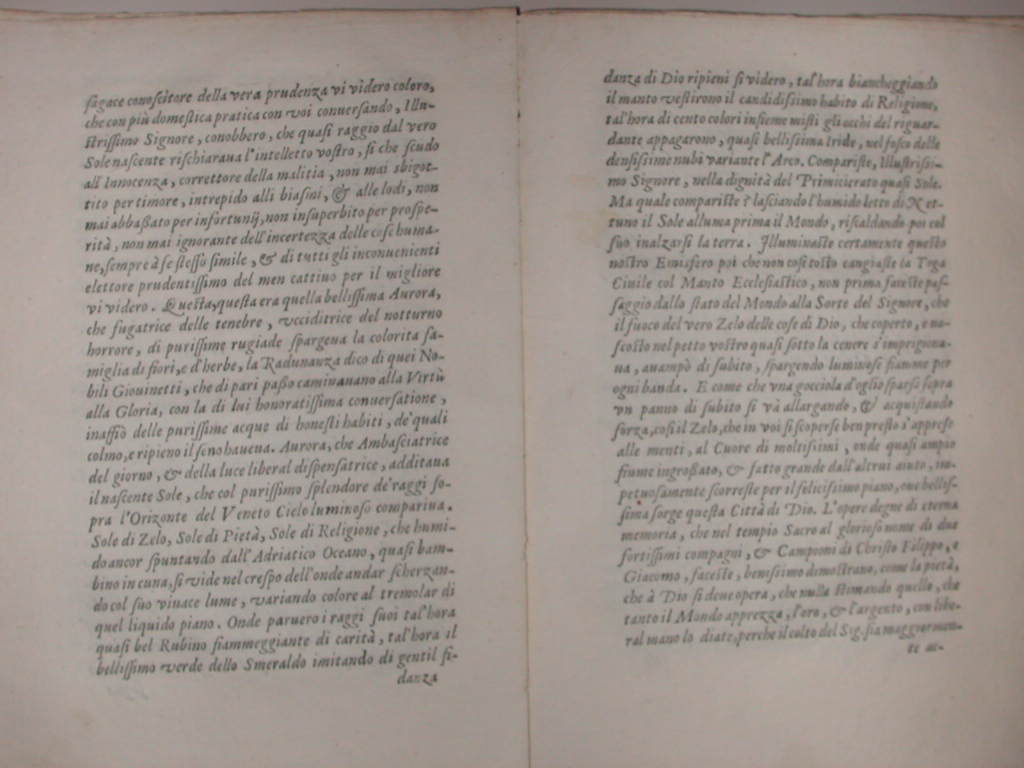 sagace conoscitore della vera prudenza vi videro coloro,
che con più domestica pratica con voi conuersando, Illu-
strissimo Signore, conobbero, che quasi raggio dal vero
Sole nascente rischiaraua l'intelletto vostro, sì che scudo
all'Innocenza, correttore della malitia, non mai sbigot-
tito per timore, intrepido alli biasini, & alle lodi, non
mai abbassato per infortunij, non insuperbito per prospe-
rità, non mai ignorante dell'incertezza delle cose huma-
ne, sempre à se stesso simile, & di tutti gli inconuenienti
elettore prudentissimo del men cattiuo per il migliore
vi videro. Questa, questa era quella bellissima Aurora,
che fugatrice delle tenebre, vcciditrice del notturno
horrore, di purissime rugiade spargeua la colorita fa-
miglia di fiori, e d'herbe, la Radunanza dico di quei No-
bili Giouinetti, che di pari passo caminauano alla Virtù
alla Gloria, con la di lui honoratissima conuersatione,
inaffiò delle purissime acque di honesti habiti, de' quali
colmo, e ripieno il seno haueua. Aurora, che Ambasciatrice
del giorno, & della luce liberal dispensatrice, additaua
il nascente Sole, che col purissimo splendore de' raggi so-
pra l'Orizonte del Veneto Cielo luminoso compariua.
Sole di Zelo, Sole di Pietà, Sole di Religione, che humi-
do ancor spuntando dall'Adriatico Oceano, quasi bam-
bino in cuna, si vide nel crespo dell'onde andar scherzan-
do col suo viuace lume, variando colore al tremolar di
quel liquido piano. Onde paruero i raggi suoi tal'hora
quasi bel Rubino fiammeggiante di carità, tal'hora il
bellissimo verde dello Smeraldo imitando di gentil fi-
danza
danza di Dio ripieni si videro, tal'hora biancheggiando
il manto vestirono il candidissimo habito di Religione,
tal'hora di cento colori insieme misti gli occhi del riguar-
dante appagarono, quasi bellissima Iride, nel fosco delle
densissime nubi variante l'Arco. Compariste, Illustrissi-
mo Signore, nella dignità del Primicierato quasi Sole.
Ma quale compariste? lasciando l'humido letto di Net-
tuno il Sole alluma prima il Mondo, riscaldando poi col
suo inalzarsi la terra. Illuminaste certamente questo
nostro Emisfero poi che non tosto tosto cangiaste la Toga
Ciuile col Manto Ecclesiastico, non prima faceste pas-
saggio dallo stato del Mondo alla Sorte del Signore, che
il fuoco del vero Zelo delle cose di Dio, che coperto, e na-
scosto nel petto vostro quasi sotto la cenere s'impregiona-
ua, auampò di subito, spargendo luminose fiamme per
ogni banda. E come che vna gocciola d'oglio sparso sopra
vn panno di subito si và allargando, & acquistando
forza, così il Zelo, che in voi si scoperse ben presto s'apprese
alle menti, al Cuore di moltissimi, onde quasi ampio
fiume ingrossato, & fatto grande dall'altrui aiuto, im-
petuosamente scorreste per il felicissimo piano, oue bellis-
sima sorge questa Città di Dio. L'opere degne di eterna
memoria, che nel tempio Sacro al glorioso nome di due
fortissimi compagni, & Campioni di Christo Filippo, e
Giacomo, faceste, benissimo dimostrano, come la pietà,
che à Dio si deue opera, che nulla stimando quello, che
tanto il Mondo apprezza, l'oro, & l'argento, con libe-
ral mano lo diate, perche il culto del Sig. sia maggiormen-
te ac-